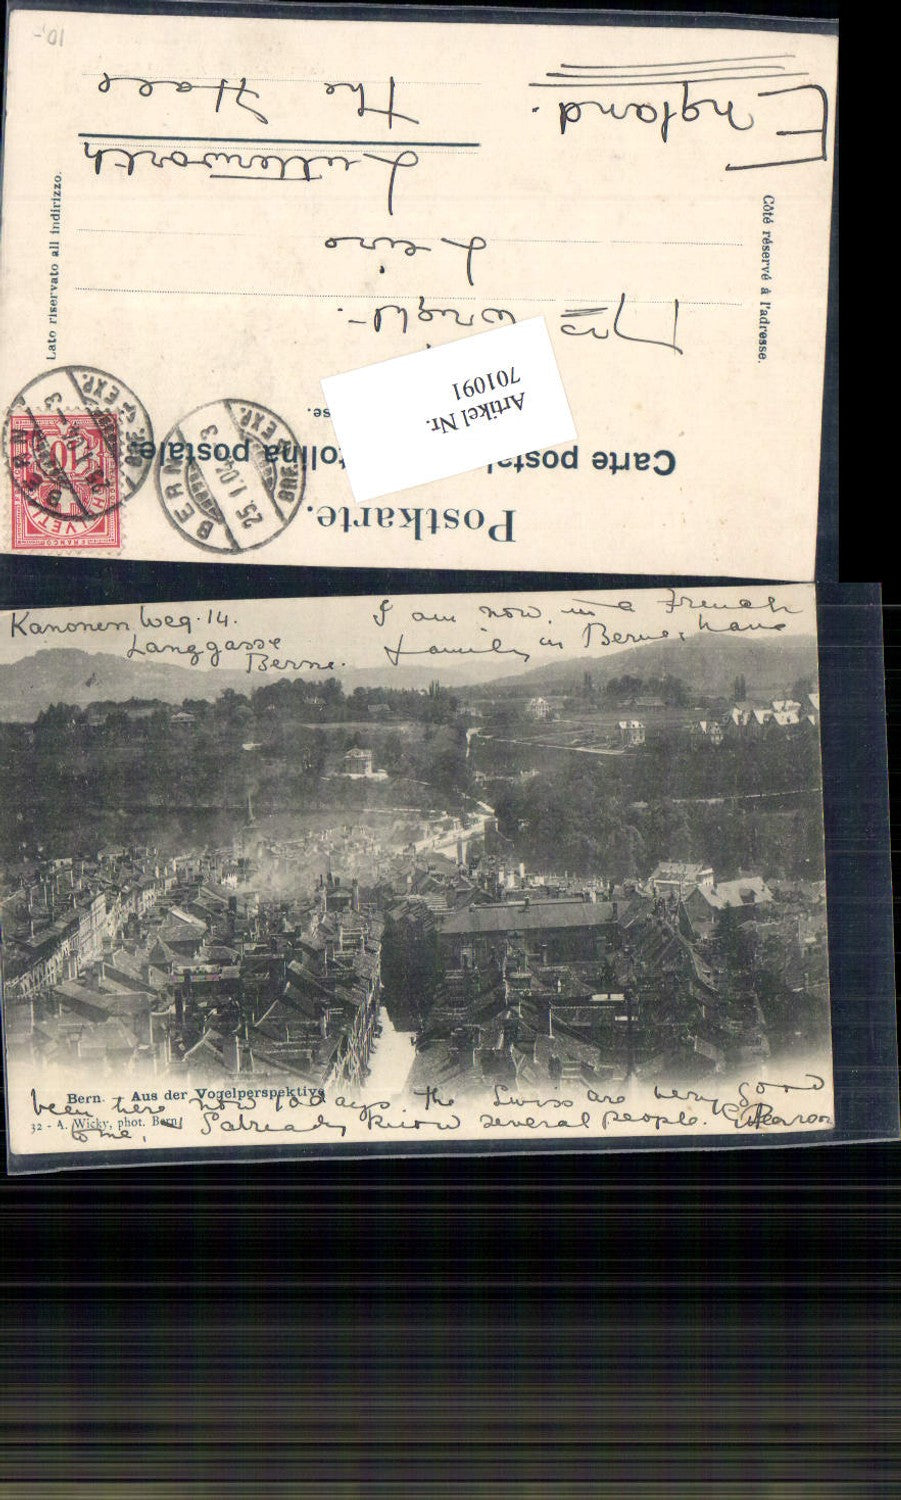 10,-
Postkarte.
Carte postale
tolina postale
se.
Artikel Nr.
701091
Côté réservé à l'adresse.
Lato riservato all indirizzo.
Mrs Wright.
Leiro
Lutterworth
The Hall
England.
BERN
25.I.04 3
BRF. EXP.
BERN
25.I.04 3
BRF. EXP.
10
HELVETIA
FRANCO
Kanonen Weg. 14.
Langgasse
Berne.
I am now in a French
family in Berne & have
Bern. Aus der Vogelperspektive
been here now 10 days the Swiss are very good
32 - A. Wicky, phot. Bern
to me, I already know several people.